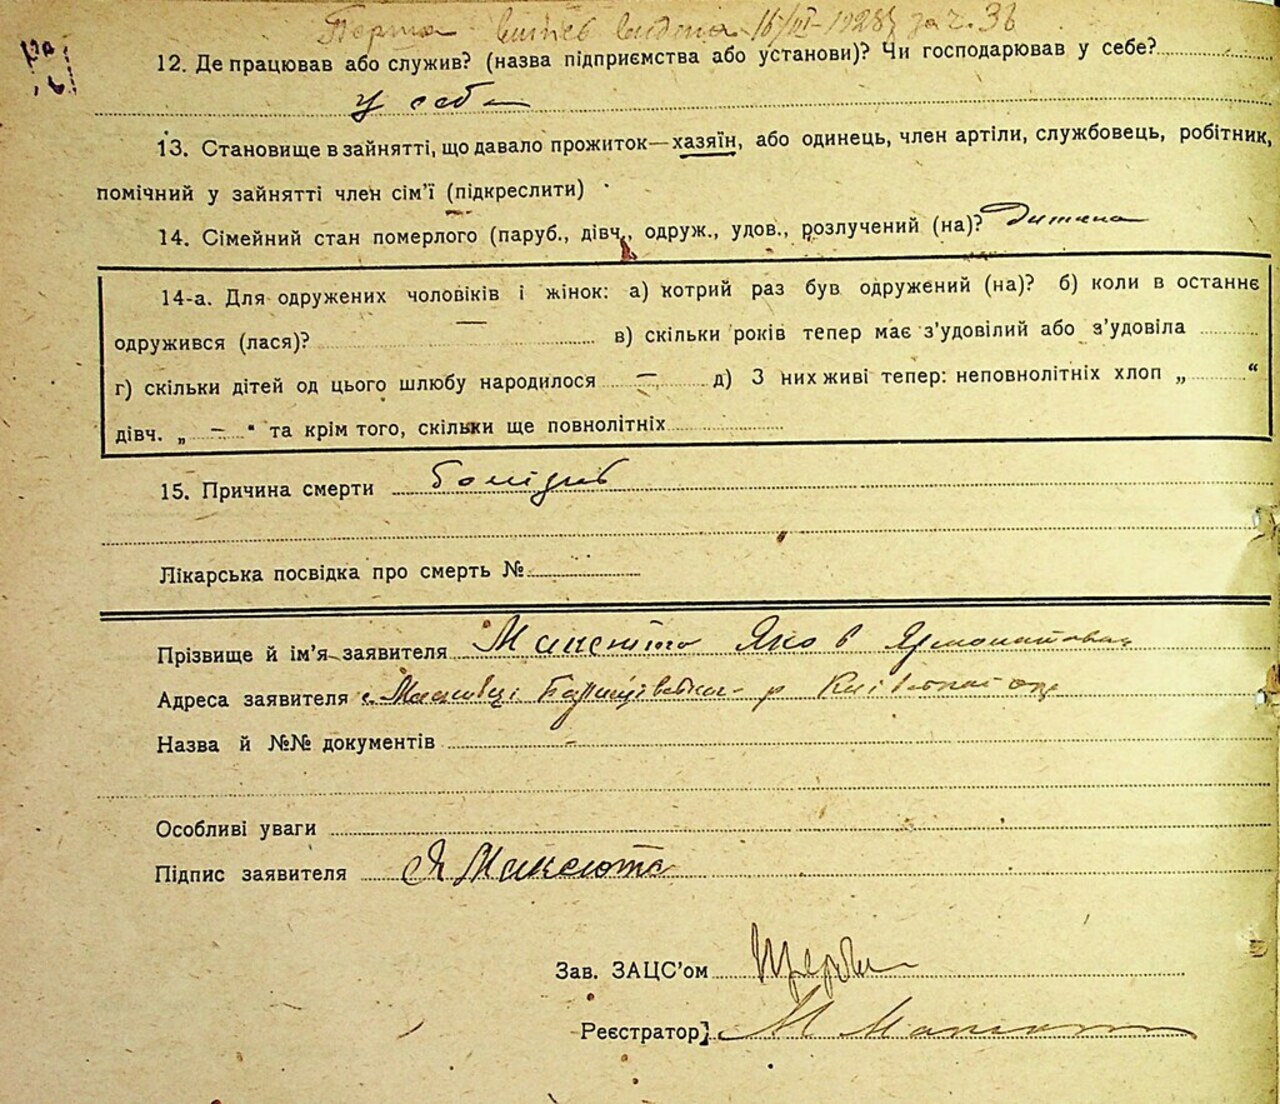 Перша витпсь видана 16/VI-1928 за ч. 36
12. Де працював або служив? (назва підприємства або установи)? Чи господарював у себе?
у себе
13. Становище в зайнятті, що давало прожиток—хазяїн, або одинець, член артіли, службовець, робітник,
помічний у зайнятті член сім'ї (підкреслити)
14. Сімейний стан померлого (паруб., дівч., одруж., удов., розлучений (на)? Дитина
14-а. Для одружених чоловіків і жінок: а) котрий раз був одружений (на)? б) коли в останнє
одружився (лася)? — в) скільки років тепер має з'удовілий або з'удовіла
г) скільки дітей од цього шлюбу народилося — д) З них живі тепер: неповнолітніх хлоп „ “
дівч. „ — “ та крім того, скільки ще повнолітніх
15. Причина смерти
Лікарська посвідка про смерть №
Прізвище й ім'я заявителя Максюта Яков
Адреса заявителя с. Масківці Баришівськ. р Київської окр
Назва й №№ документів —
Особливі уваги
Підпис заявителя Я Максюта
Зав. ЗАЦС'ом
Реєстратор М Максюта